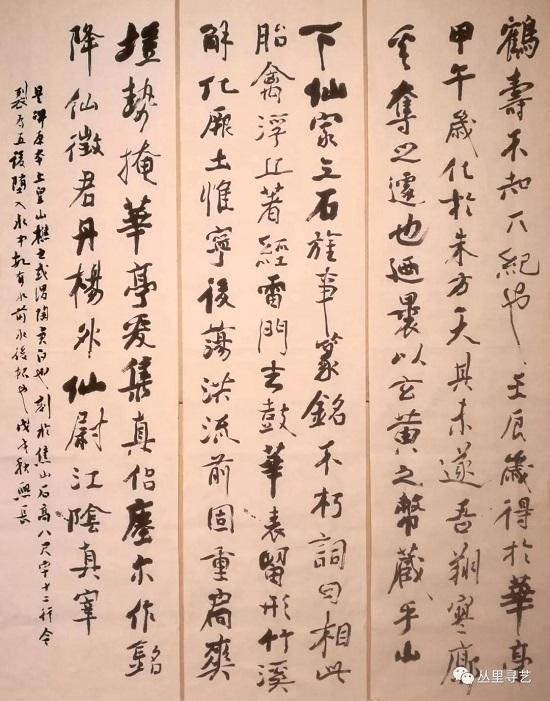 鶴壽不知丌紀也壬辰歲得於華亭
甲午歲化於朱方天其未遂吾翔寥廓
奚奪之遽也迺裹以玄黃之幣藏乎山
下仙家立石旌事篆銘不朽詞曰相此
胎禽浮丘著經雷門去鼓華表留形竹溪
解化厥土惟寧後蕩洪流前固重扃爽
塏勢掩華亭爰集真侶瘞尔作銘
降仙徵君丹楊外仙尉江陰真宰
是碑原上皇山樵書或謂陶貞白也刻於焦山石高八尺字十二行今
裂为五後堕入水中故有水前水後拓也戊戌秋興長
丛里寻艺